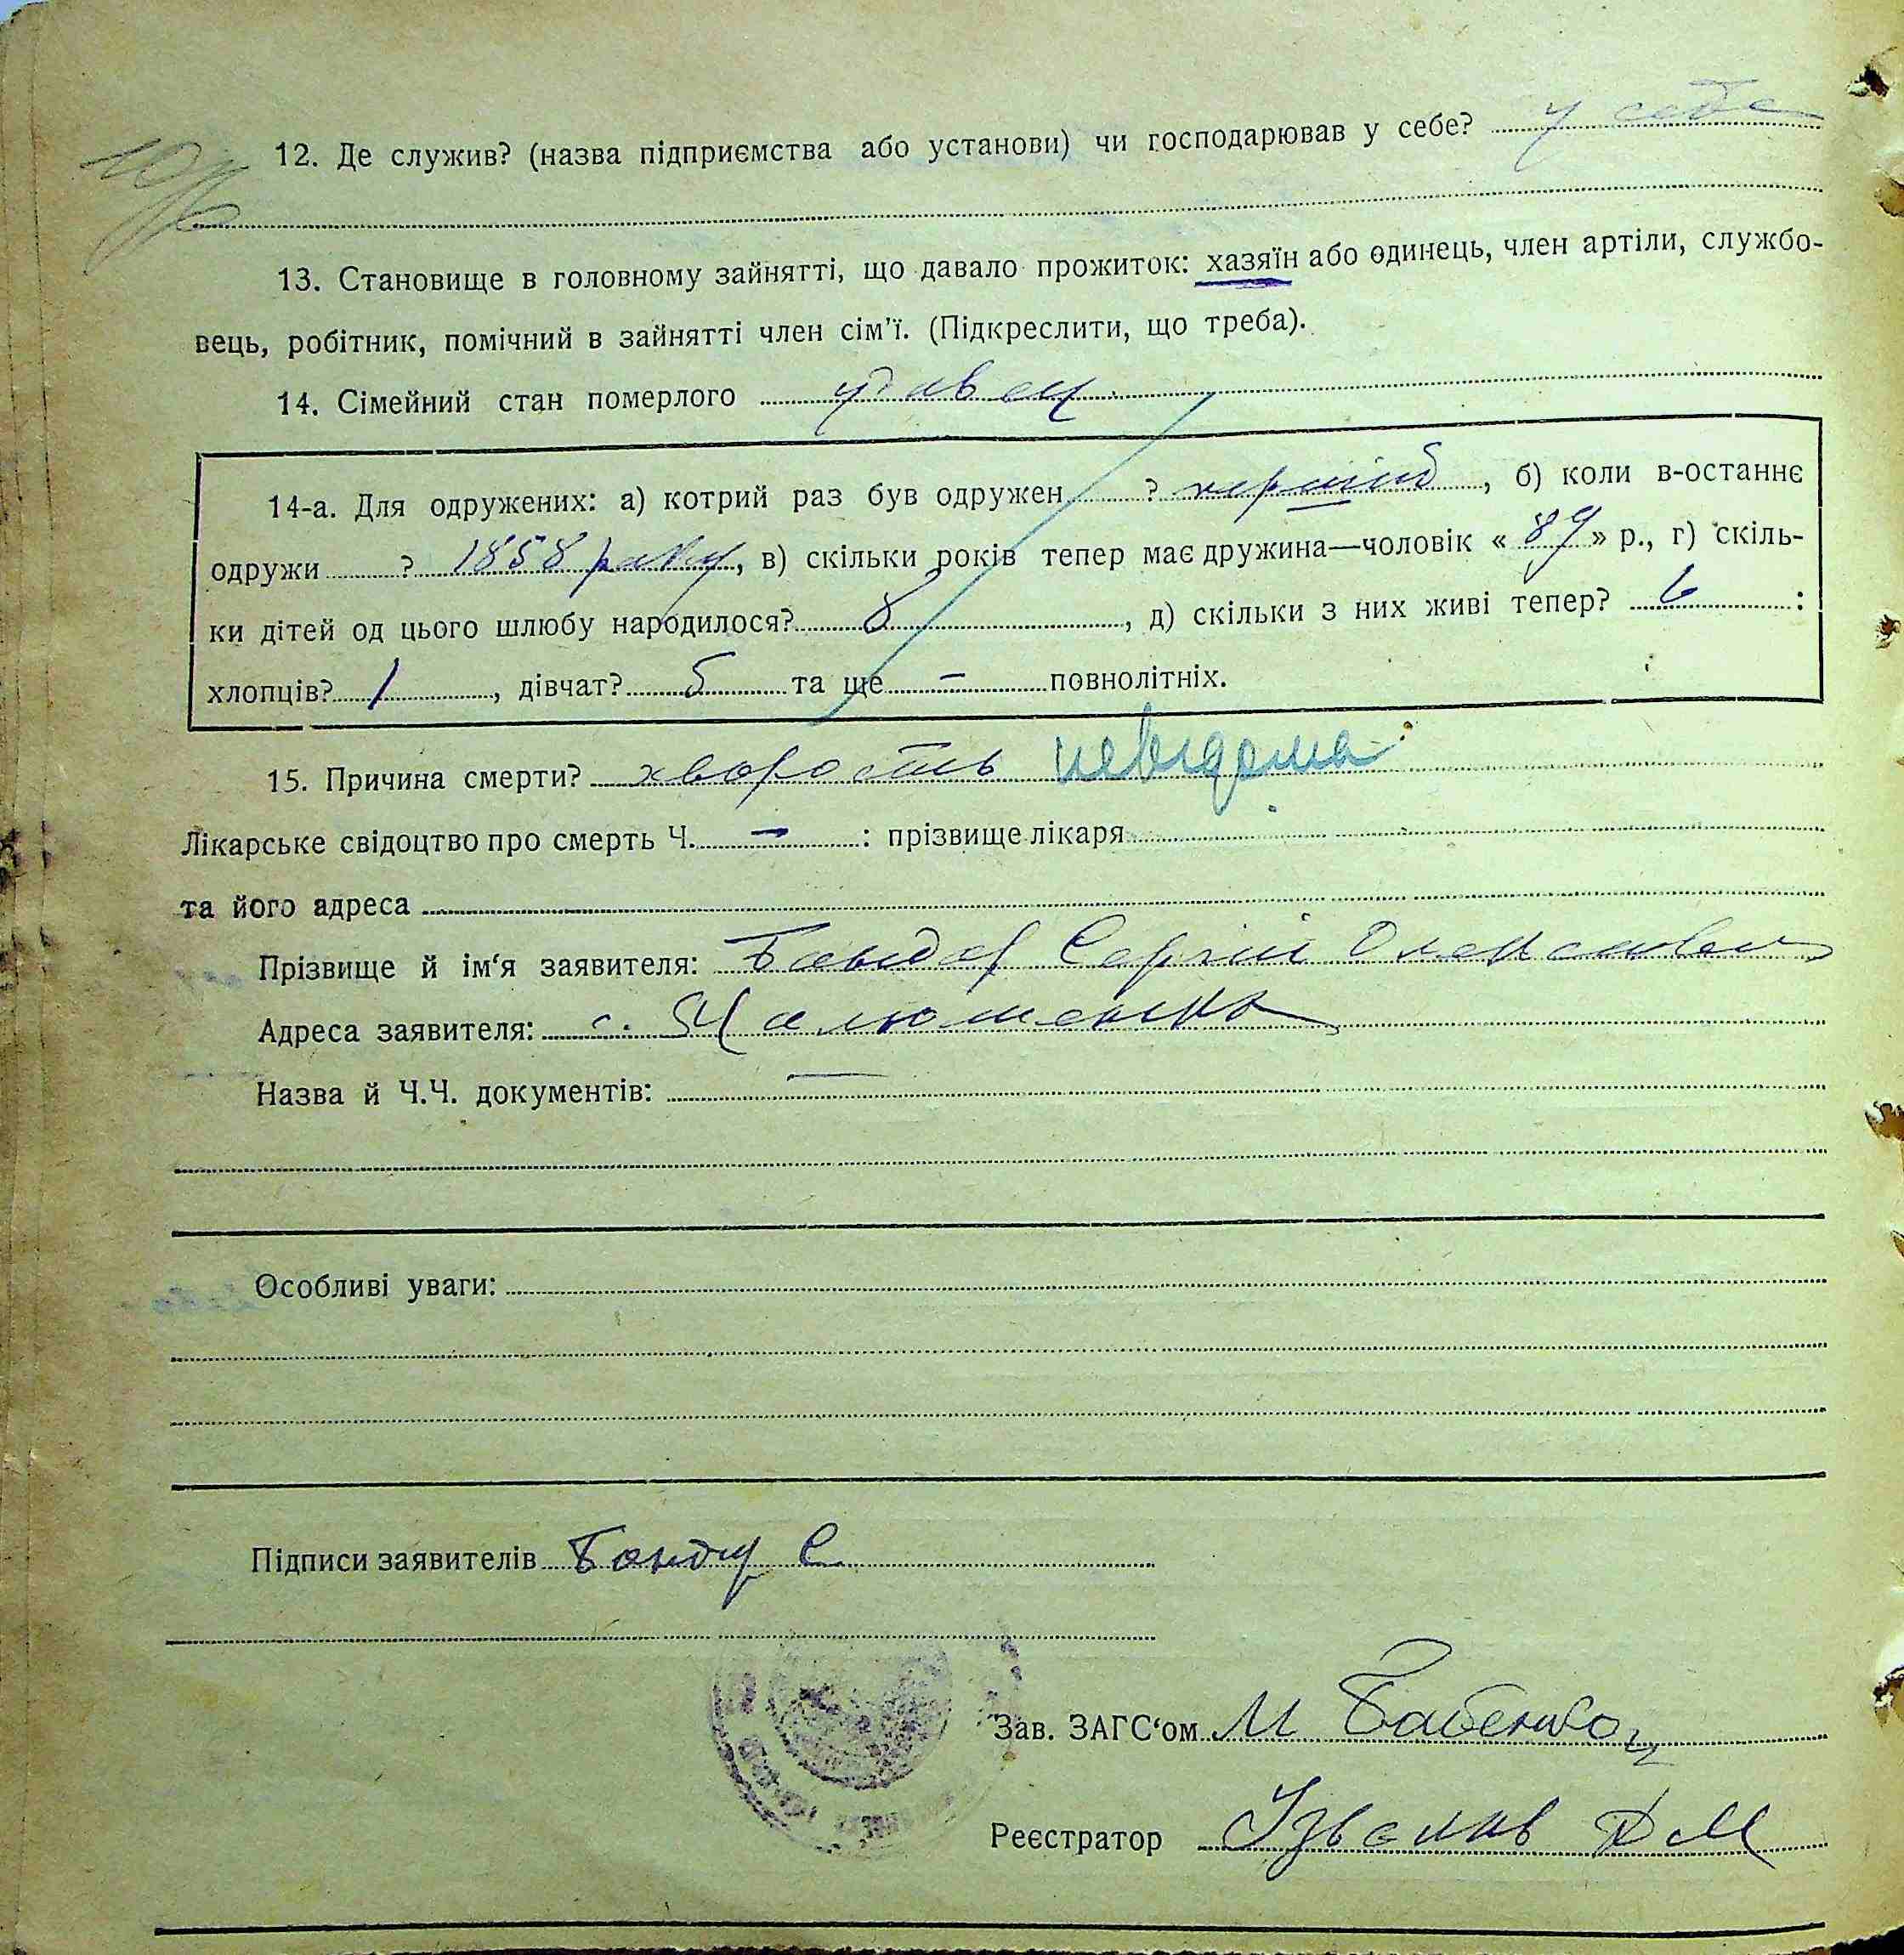 12. Де служив? (назва підприємства або установи) чи господарював у себе? у себе
13. Становище в головному зайнятті, що давало прожиток: хазяїн або одинець, член артіли, службо-
вець, робітник, помічний в зайнятті член сім'ї. (Підкреслити, що треба).
14. Сімейний стан померлого удавец
14-а. Для одружених: а) котрий раз був одружен ? перший, б) коли в-останнє
одружи ? 1858 року, в) скільки років тепер має дружина—чоловік « 89 » р., г) скіль-
ки дітей од цього шлюбу народилося? 8, д) скільки з них живі тепер? 6 :
хлопців? 1, дівчат? 5 та ще — повнолітніх.
15. Причина смерти? хворость невідома
Лікарське свідоцтво про смерть Ч. — : прізвище лікаря
та його адреса
Прізвище й ім'я заявителя: Сергій
Адреса заявителя: с.
Назва й Ч.Ч. документів: —
Особливі уваги:
Підписи заявителів С
Зав. ЗАГС'ом М Бабенко
Реєстратор